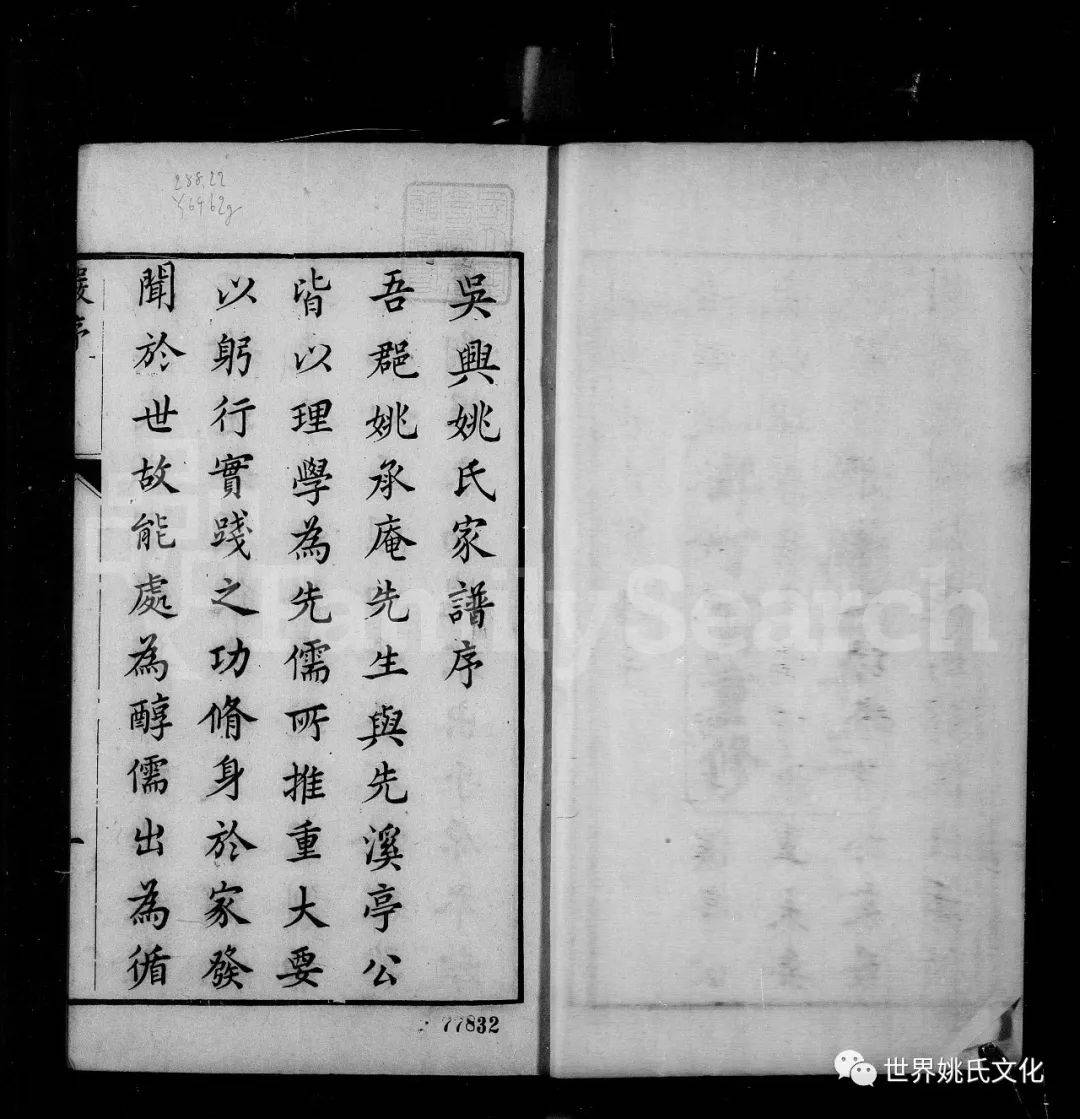 吳興姚氏家譜序
吾郡姚承庵先生與先溪亭公
皆以理學為先儒所推重大要
以躬行實踐之功脩身於家發
聞於世故能處為醇儒出為循
嚴序
一
288.22
Y6462g
77832
FamilySearch
世界姚氏文化